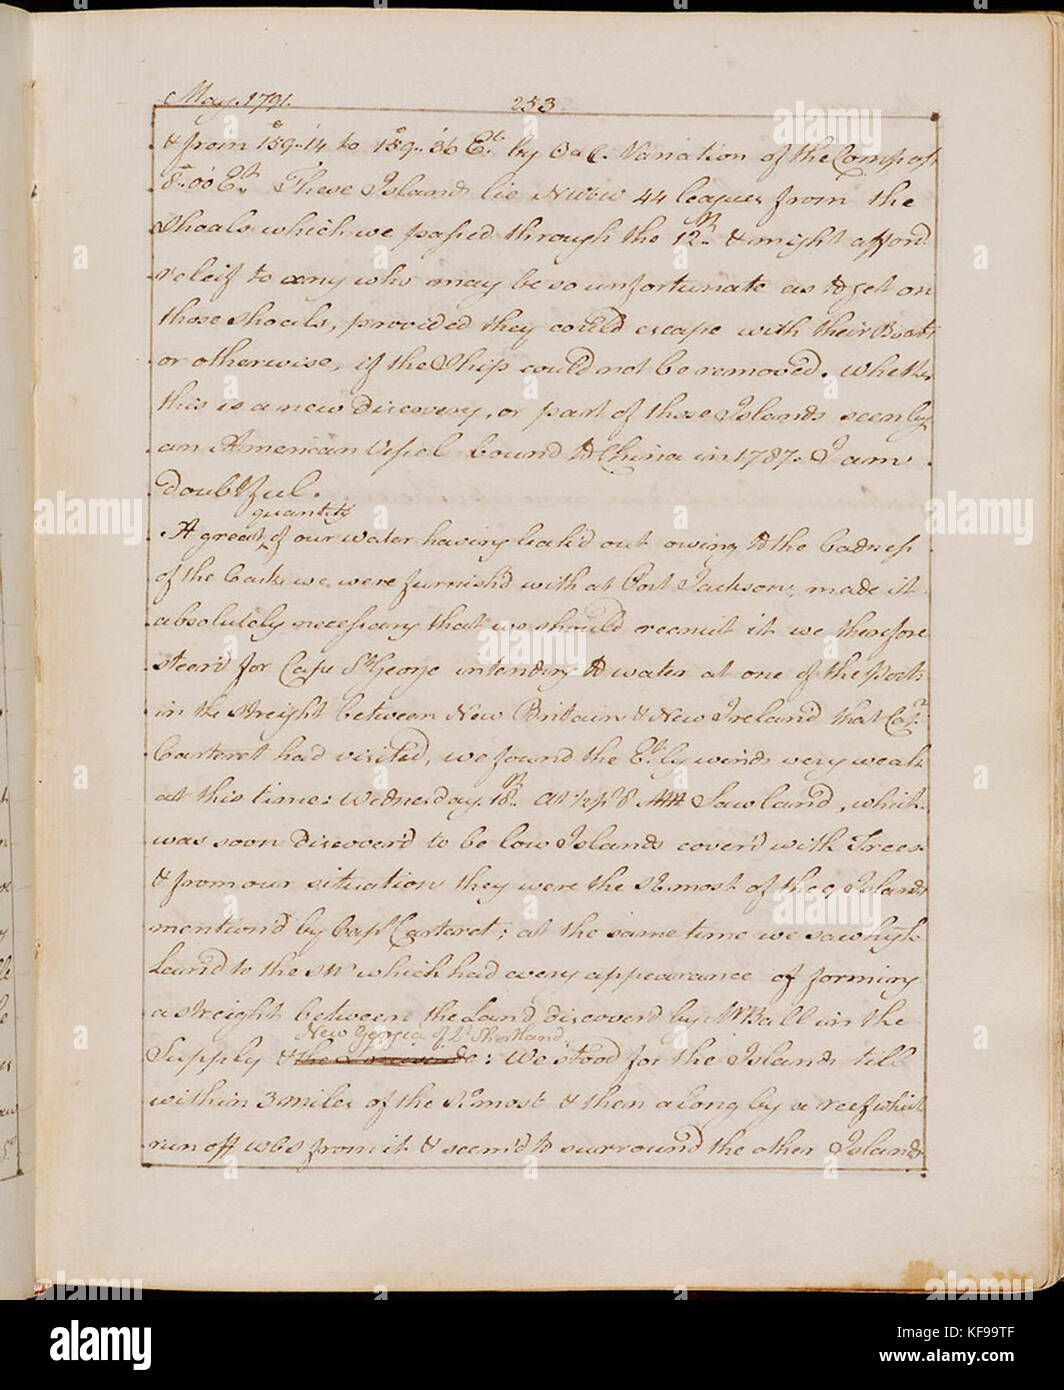 May. 1791. 253
& from 159..14 to 159..36 Et. by ☽ a ☾. Variation of the Compass
8..00 Et. These Islands lie NWbW 44 leagues from the
Shoals which we passed through the 12th. & might afford
releif to any who may be so unfortunate as to get on
those shoals, provided they could escape with their Boats
or otherwise, if the Ship could not be removed. Whether
this is a new discovery, or part of those Islands seen by
an American Vessel bound to China in 1787. I am
doubtful.
quantity
A great ^ of our water having leak'd out owing to the badness
of the Casks we were furnish'd with at Port Jackson, made it
absolutely necessary that we should recruit it we therefore
steer'd for Cape St. George intending to water at one of the Ports
in the streight between New Britain & New Ireland that Capt.
Carteret had visited, we found the Ely. winds very weak
at this time: Wednesday 18th. At ½ pt 8 Saw land, which
was soon discover'd to be low Islands cover'd with Trees
& from our situation they were the St.most of the 9 Islands
mention'd by Capt. Carteret; at the same time we saw high
Land to the SW which had every appearance of forming
a streight between the Land discover'd by Mr Ball in the
New Georgia of Lt. Shortland
Supply & the: We stood for the Islands till
within 3 miles of the St.most & then along by a reef which
run off WbS from it & seem'd to surround the other Islands
alamy
Image ID: KF99TF
www.alamy.com